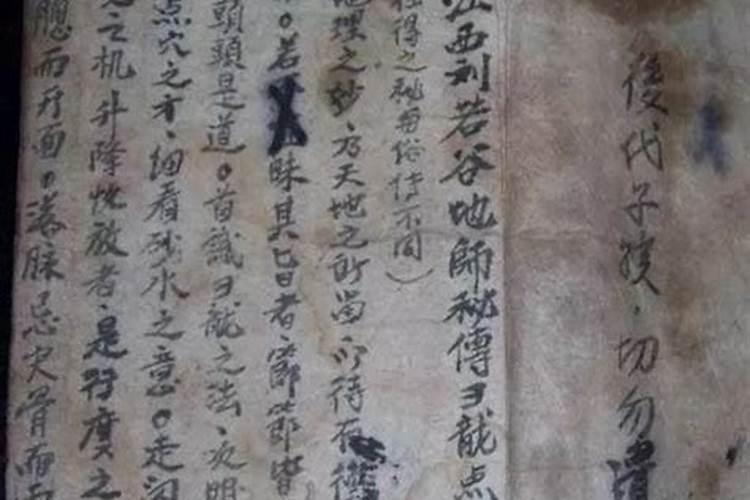 後代子孩，切勿遺
江西利若谷地師秘傳ヨ龍点
得之秘與俗傳不同）
地理之妙、乃天地之所留、以待有德
。若昧其旨者、節節皆
頭頭是道。首識ヨ龍之法、次明
点穴之方、细看砂水之意。走
之机升降收放者、是行度之
而开面。落脉忌失骨而